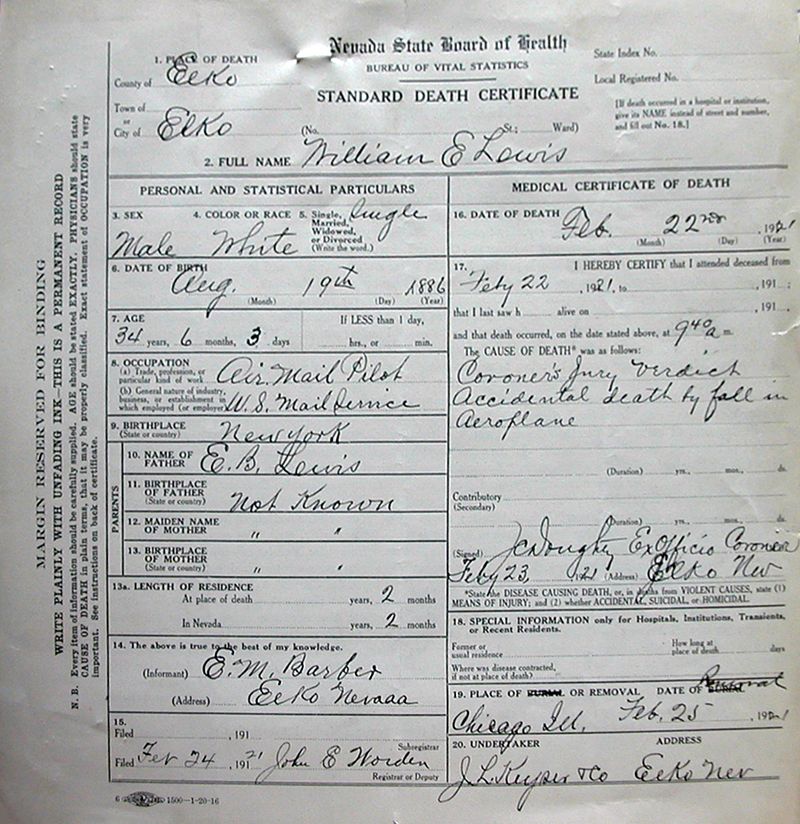 Nevada State Board of Health
BUREAU OF VITAL STATISTICS
STANDARD DEATH CERTIFICATE
State Index No.
Local Registered No.
[If death occurred in a hospital or institution, give its NAME instead of street and number, and fill out No. 18.]
1. PLACE OF DEATH
County of Elko
Town of
or
City of Elko (No. St.; Ward)
2. FULL NAME William E Lewis
PERSONAL AND STATISTICAL PARTICULARS
3. SEX Male
4. COLOR OR RACE White
5. Single, Married, Widowed, or Divorced (Write the word.) Single
6. DATE OF BIRTH Aug. 19th 1886
(Month) (Day) (Year)
7. AGE If LESS than 1 day,
34 years, 6 months, 3 days hrs., or min.
8. OCCUPATION
(a) Trade, profession, or particular kind of work Air Mail Pilot
(b) General nature of industry, business, or establishment in which employed (or employer) U.S. Mail Service
9. BIRTHPLACE
(State or country) New York
PARENTS
10. NAME OF FATHER E. B. Lewis
11. BIRTHPLACE OF FATHER
(State or country) Not Known
12. MAIDEN NAME OF MOTHER " "
13. BIRTHPLACE OF MOTHER
(State or country) " "
13a. LENGTH OF RESIDENCE
At place of death years, 2 months
In Nevada years, 2 months
14. The above is true to the best of my knowledge.
(Informant) E. M. Barber
(Address) Elko Nevada
15.
Filed , 191
Subregistrar
Filed Feb 24 , 191 21 John E Worden
Registrar or Deputy
6 1500—1-20-16
MEDICAL CERTIFICATE OF DEATH
16. DATE OF DEATH Feb. 22nd , 1921
(Month) (Day) (Year)
17. I HEREBY CERTIFY that I attended deceased from
Feby 22 , 1921, to , 191 ;
that I last saw h alive on , 191 ;
and that death occurred, on the date stated above, at 9 40 a m.
The CAUSE OF DEATH* was as follows:
Coroner's Jury Verdict
Accidental death by fall in
Aeroplane
(Duration) yrs., mos., ds.
Contributory
(Secondary)
(Duration) yrs., mos., ds.
(Signed) J C Doughty Ex Officio Coroner
Feby 23, 1921 (Address) Elko Nev
*State the DISEASE CAUSING DEATH, or, in deaths from VIOLENT CAUSES, state (1) MEANS OF INJURY; and (2) whether ACCIDENTAL, SUICIDAL, or HOMICIDAL.
18. SPECIAL INFORMATION only for Hospitals, Institutions, Transients, or Recent Residents.
Former or usual residence
How long at place of death days
Where was disease contracted, if not at place of death?
19. PLACE OF BURIAL OR REMOVAL DATE OF BURIAL Removal
Chicago Ill. Feb. 25 , 1921
20. UNDERTAKER ADDRESS
J. L. Keyser & Co Elko Nev
MARGIN RESERVED FOR BINDING
WRITE PLAINLY WITH UNFADING INK—THIS IS A PERMANENT RECORD
N. B. Every item of information should be carefully supplied. AGE should be stated EXACTLY. PHYSICIANS should state
CAUSE OF DEATH in plain terms, that it may be properly classified. Exact statement of OCCUPATION is very
important. See instructions on back of certificate.